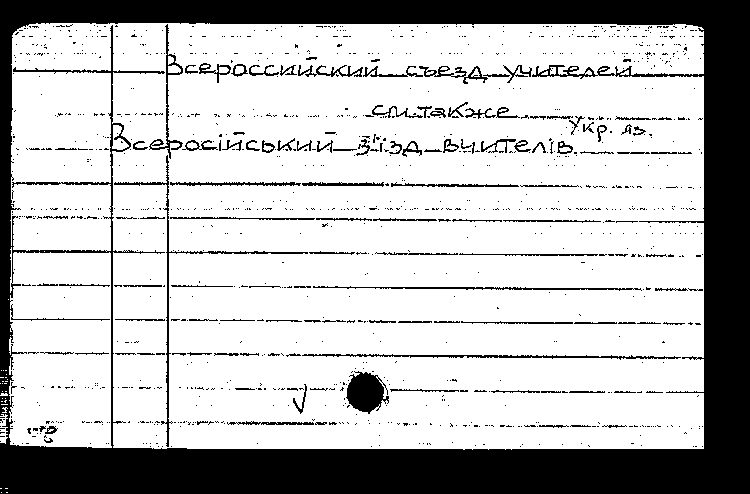 Всероссийский съезд учителей
см. также
Укр. яз.
Всеросійський з'їзд вчителів